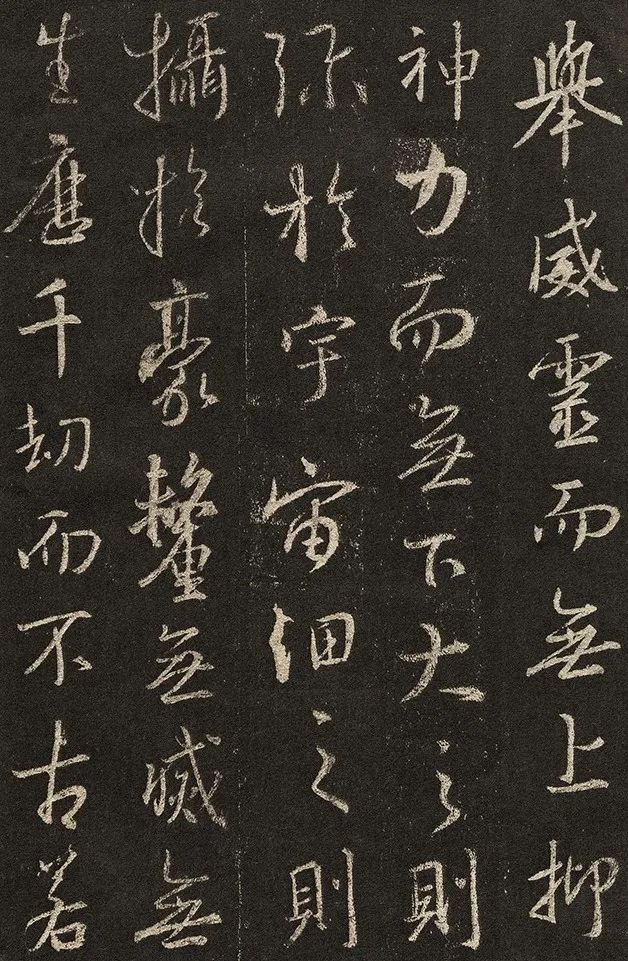 舉威靈而無上抑
神力而無下大之則
彌於宇宙細之則
攝於豪釐無滅無
生歷千劫而不古若